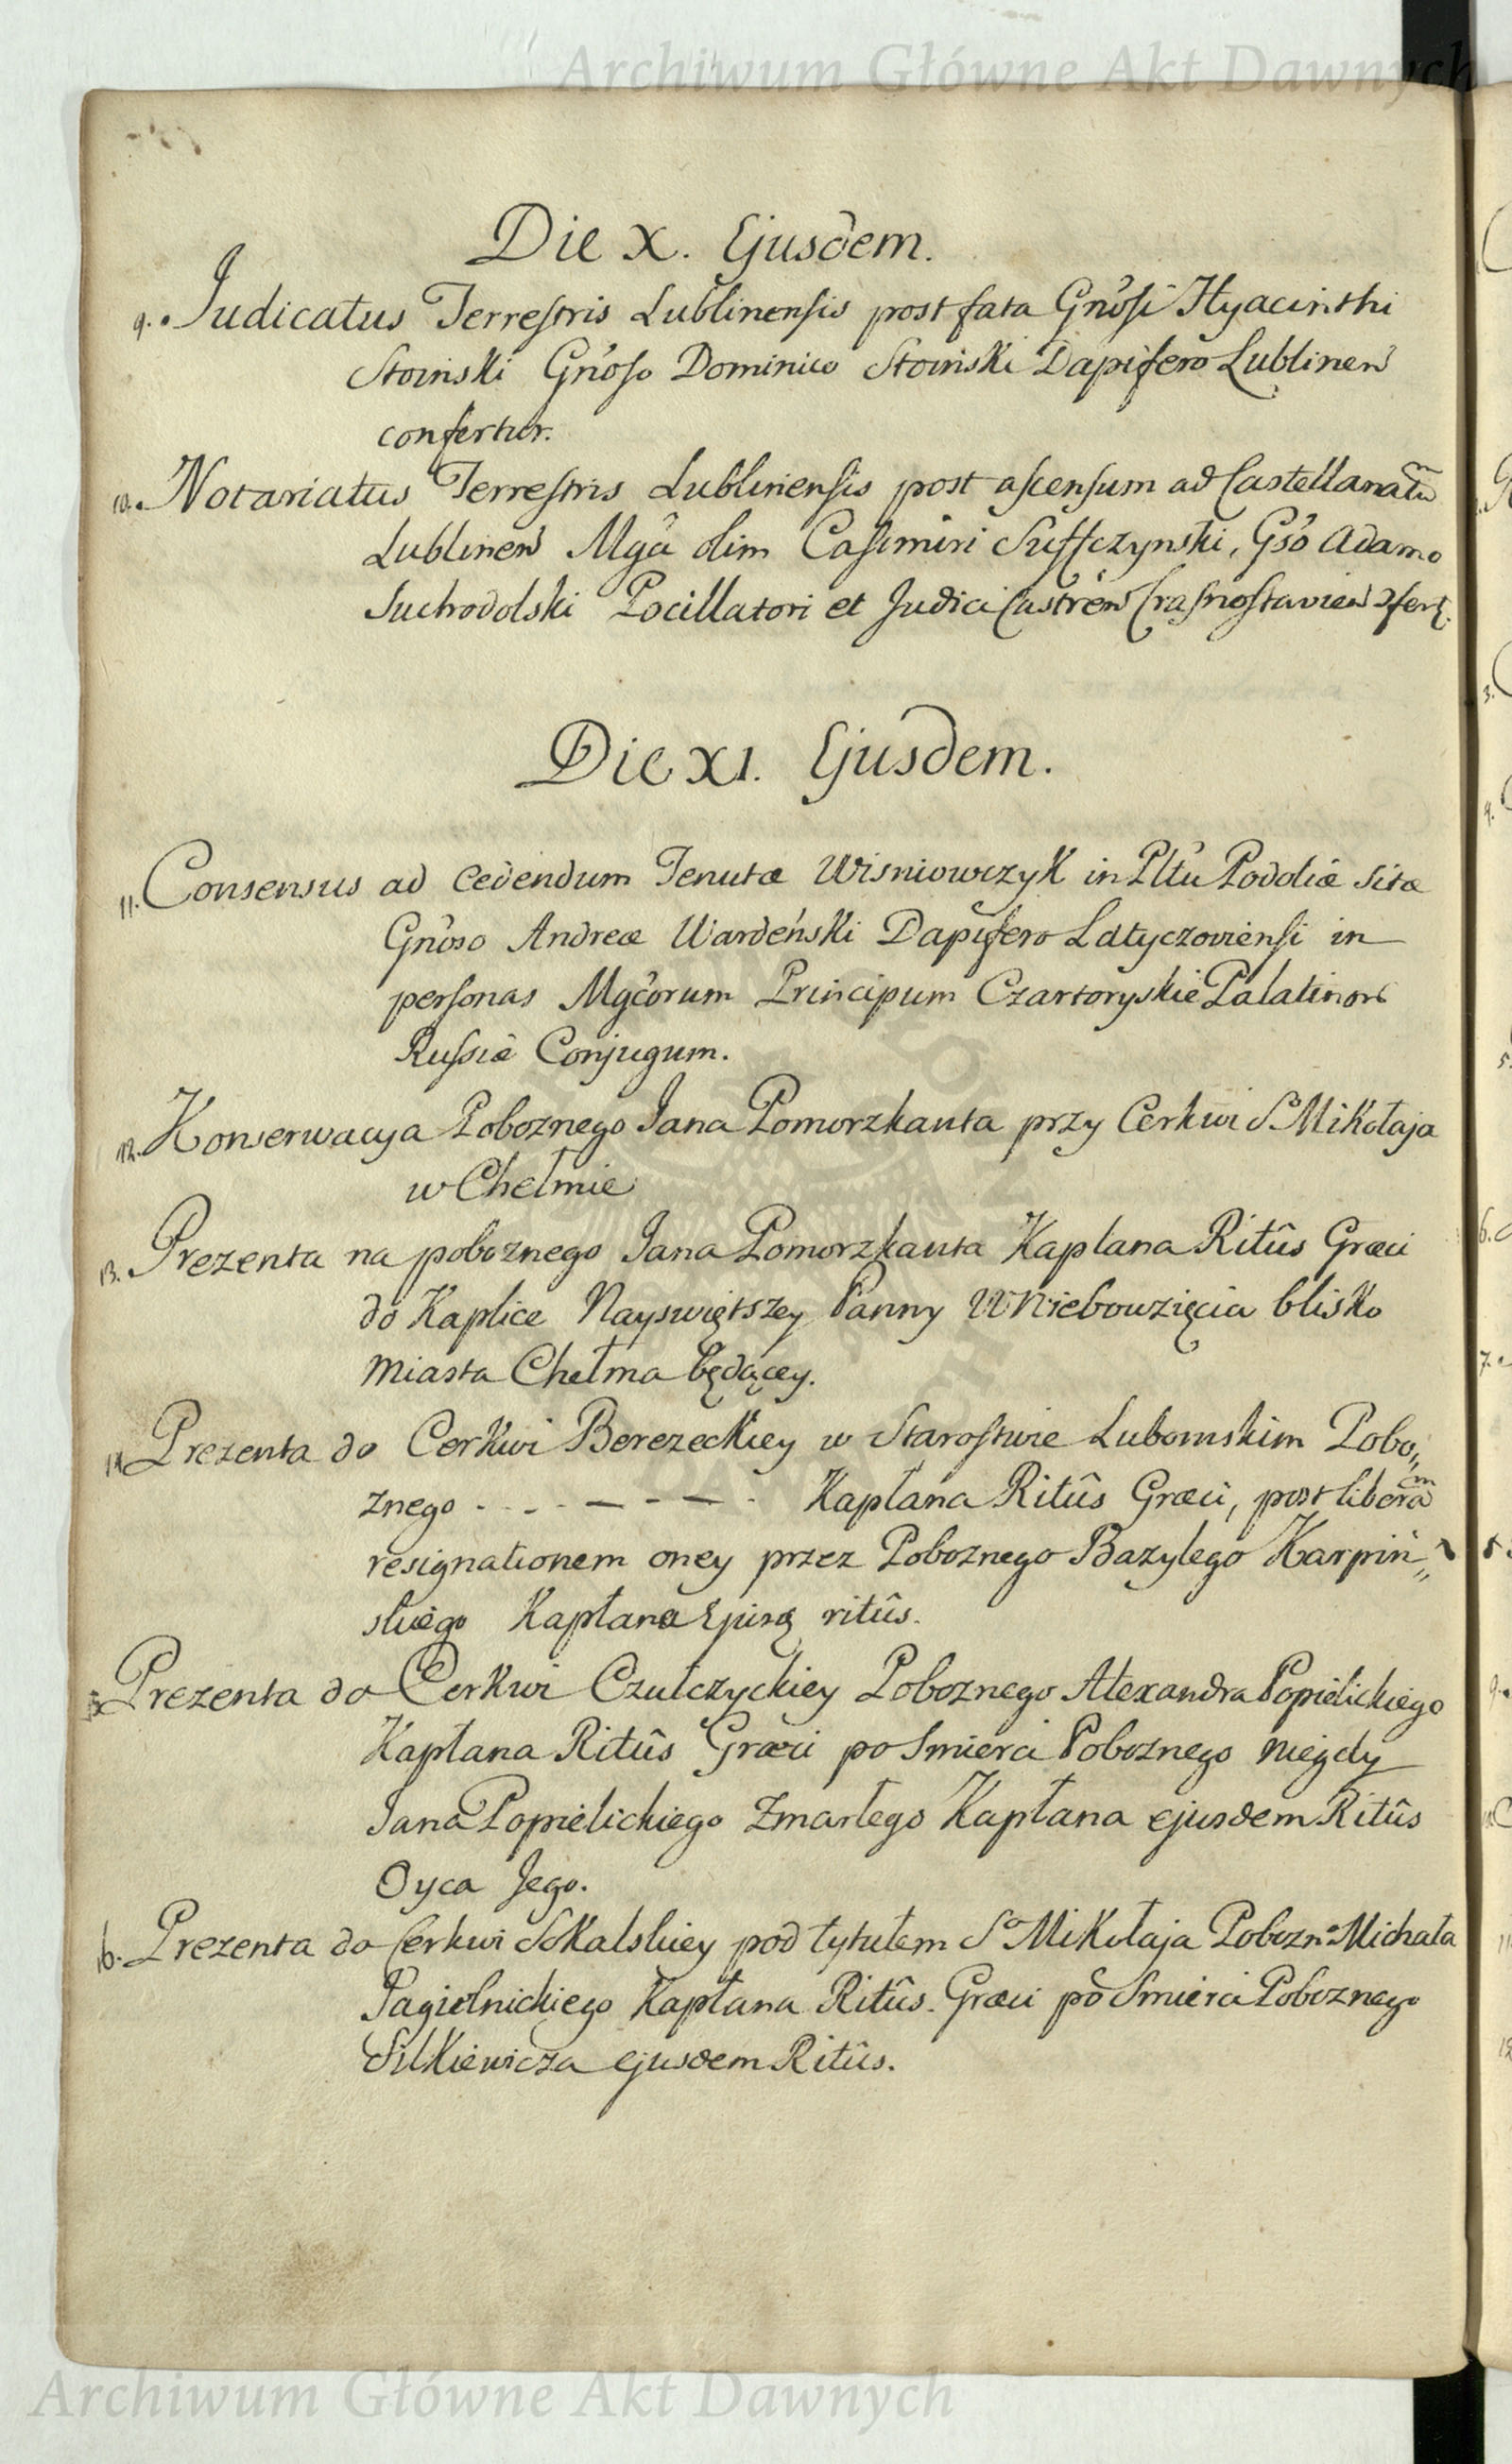 Archiwum Główne Akt Dawnych
Die X. Ejusdem.
9. Judicatus Terrestris Lublinensis post fata Gnosi Hyacinthi
Stoinski Gnoso Dominico Stoinski Dapifero Lublinen
confertur.
10. Notariatus Terrestris Lublinensis post ascensum ad Castellanatū
Lublinen Mgci olim Casimiri Suffczynski, Gso Adamo
Suchodolski Pocillatori et Judici Castren Crasnostavien
Die XI. Ejusdem.
11. Consensus ad cedendum Tenutæ Wisniowczyk in Pltu Podoliæ sitæ
Gnoso Andreæ Wardeński Dapifero Latyczoviensi in
personas Mgcorum Principum Czartoryskie Palatinor
Russiæ Conjugum.
12. Konserwacya Poboznego Jana Pomorzkanta przy Cerkwi So Mikołaja
w Chełmie
13. Prezenta na poboznego Jana Pomorzkanta Kaplana Ritûs Græci
do Kaplice Nayswiętszey Panny Wniebowzięcia blisko
Miasta Chełma będącey.
14. Prezenta do Cerkwi Berezeckiey w Starostwie Lubomskim Pobo„
znego - - - - - - - Kapłana Ritûs Græci, post liberam
resignationem oney przez Poboznego Bazylego Karpiń„
skiego Kapłana Ejusq ritûs.
15. Prezenta do Cerkwi Czulczyckiey Poboznego Alexandra Popielickiego
Kapłana Ritûs Græci po Smierci Poboznego niegdy
Jana Popielickiego Zmarłego Kapłana ejusdem Ritûs
Oyca Jego.
16. Prezenta do Cerkwi Sokalskiey pod tytułem So Mikołaja Pobozno Michała
Jagielnickiego Kapłana Ritûs Græci po Smierci Poboznego
Silkiewicza ejusdem Ritûs.
Archiwum Główne Akt Dawnych